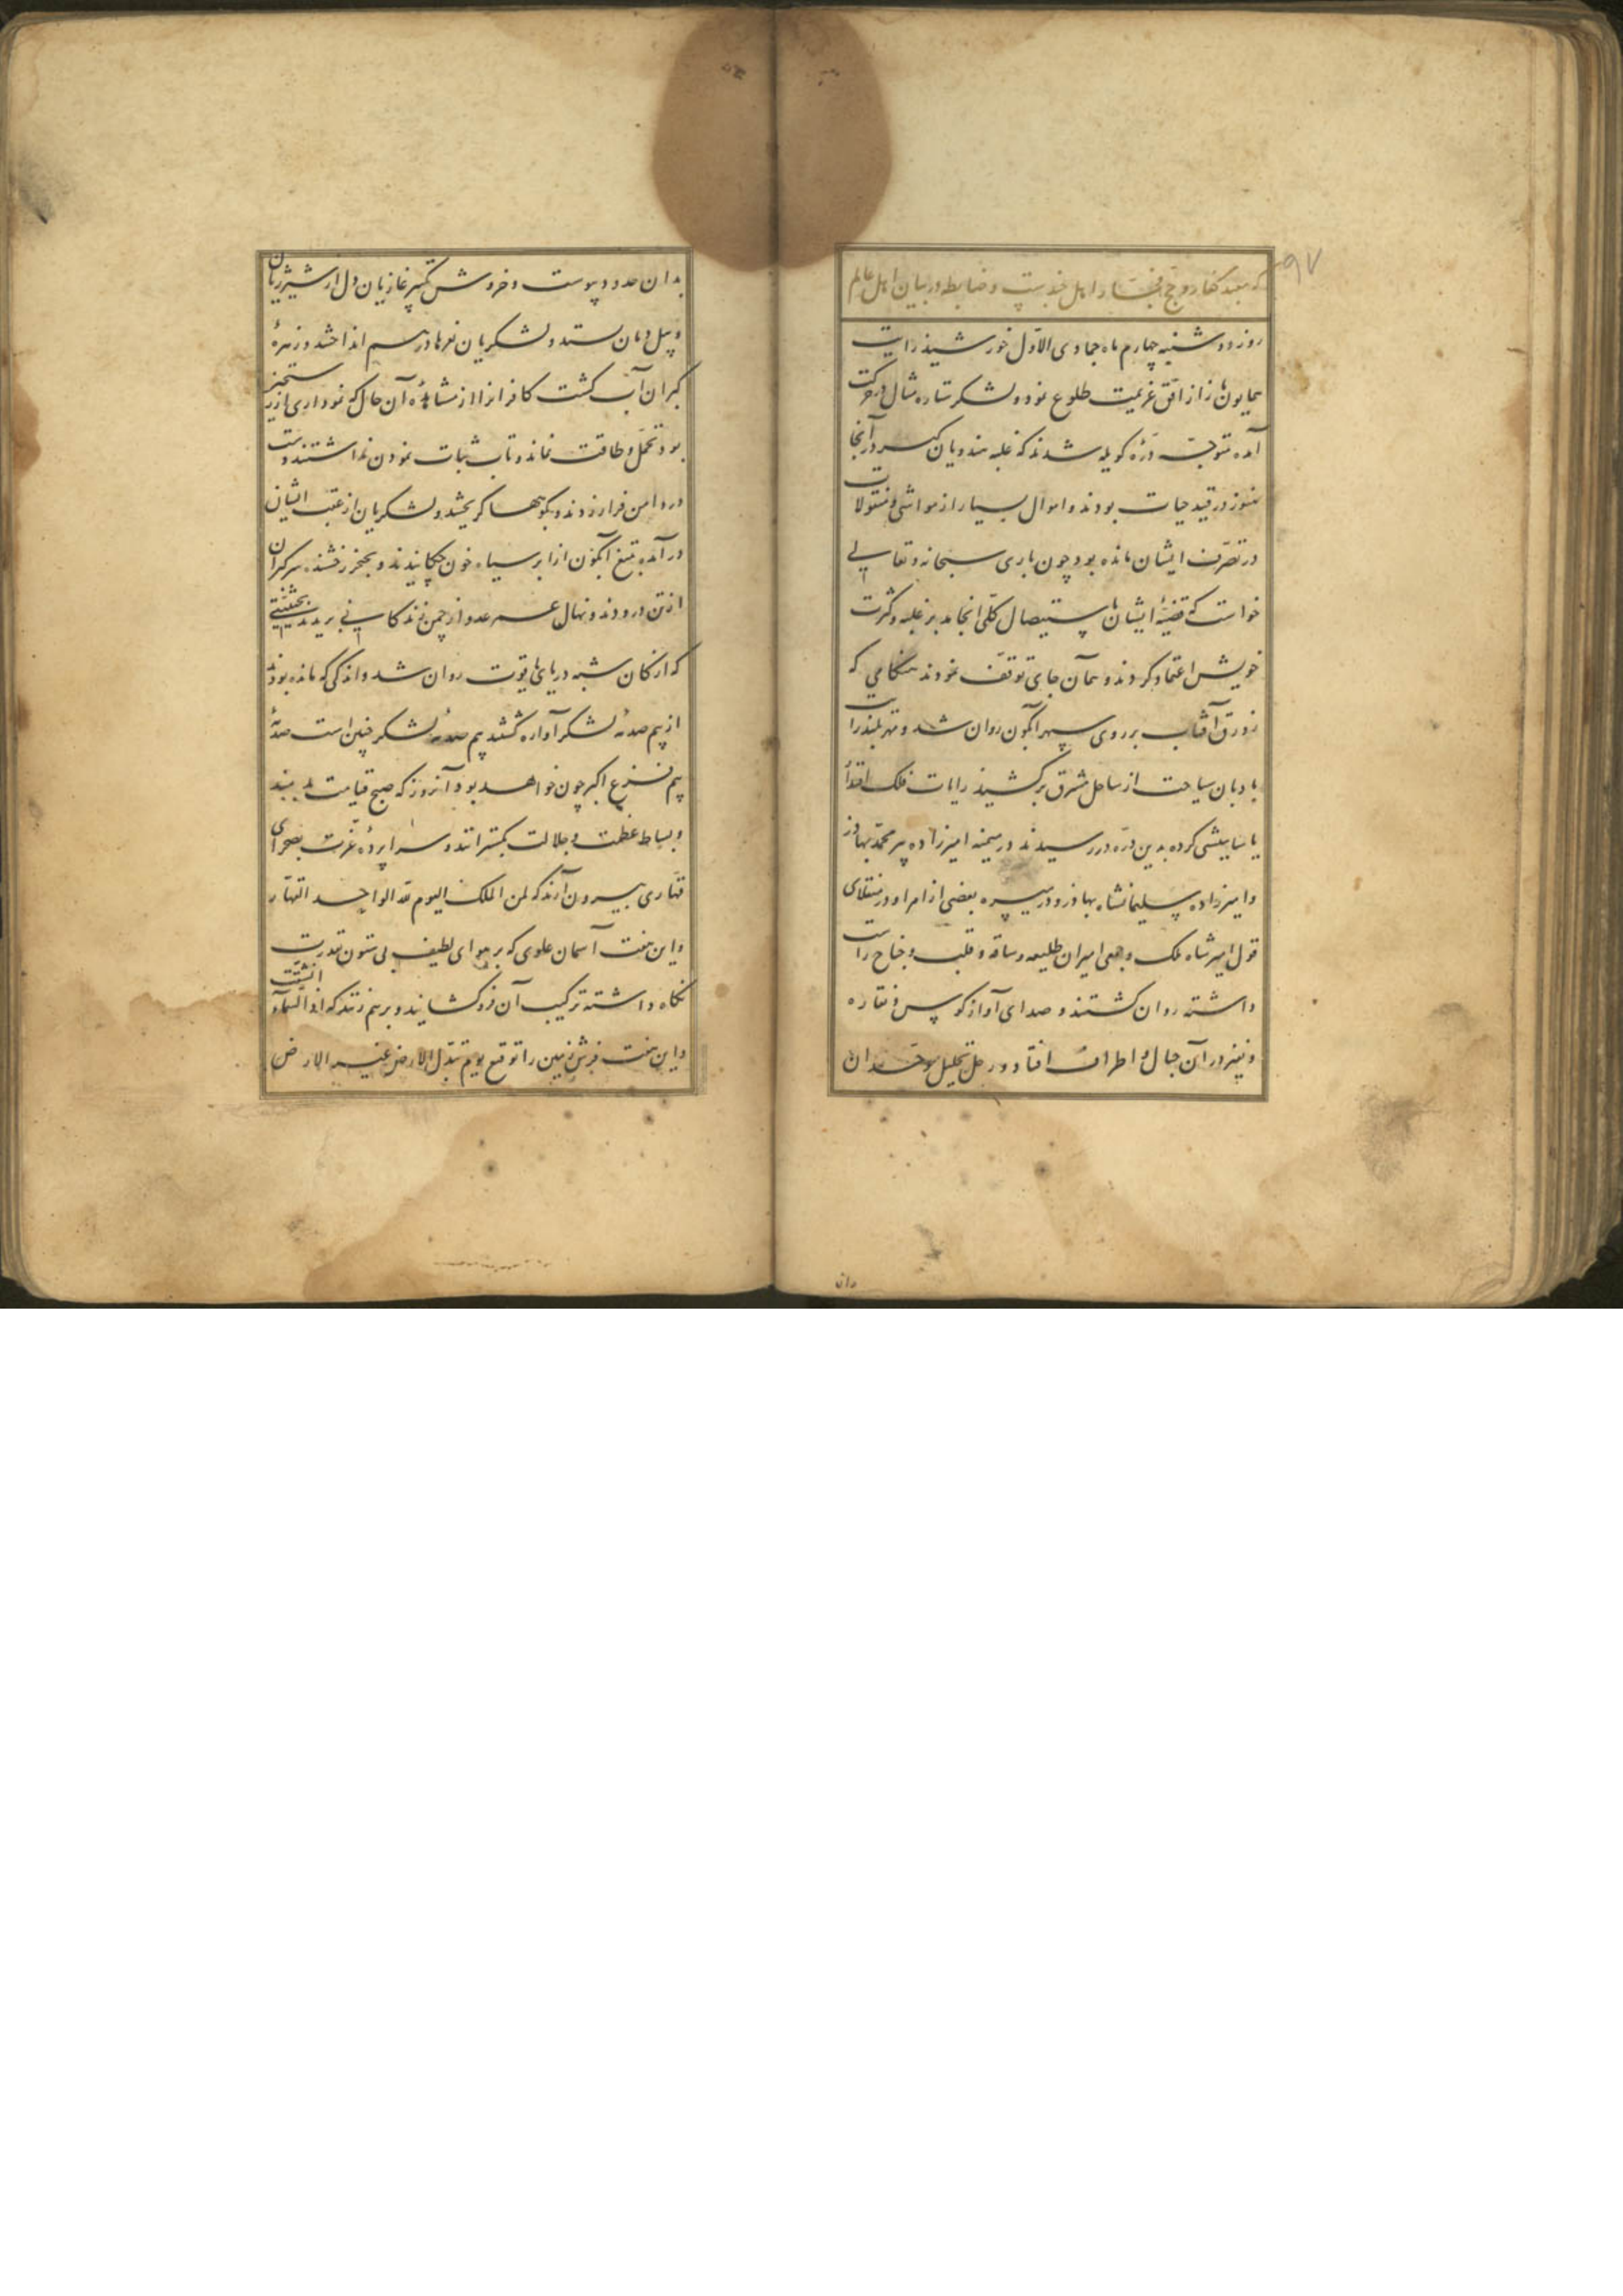 ۹۷
که معبد کفار و حج فجار اهل هند است و ضابطه در بیان اهل عالم
روز دوشنبه چهارم ماه جمادی الاوّل خورشید رایت
همایون باز از افق عزیمت طلوع نمود و لشکر ستاره مثال در حرکت
آمده متوجّه درّهٔ کوپله شدند که غلبه هندویان گبر در آنجا
هنوز در قید حیات بودند و اموال بسیار از مواشی و منقولات
در تصرّف ایشان مانده بود چون باری سبحانه و تعالی
خواست که قضیهٔ ایشان باستیصال کلّی انجامد بر غلبه و کثرت
خویش اعتماد کردند و همان جای توقف نمودند هنگامی که
زورق آفتاب بر روی سپهر آبگون روان شد و
بادبان سیاحت از ساحل مشرق برکشید رایات فلک
یاسامیشی کرده بدین درّه در رسیدند در میمنه امیرزاده پیر محمّد بهادر
و امیرزاده سلیمانشاه بهادر و در میسره بعضی از امرا و در منقلای
قول امیر شاه ملک و جمعی امیران طلیعه و ساقه و قلب و جناح راست
داشته روان گشتند و صدای آواز کوس و نقاره
و نفیر در آن جبال و اطراف افتاد و زجل تهلیل موحّدان
وان
بدان حدود پیوست و خروش تکبیر غازیان دل از شیر ژیان
و پیل دمان بستد و لشکریان نعرها در هم انداختند و زهرهٔ
گبران آب گشت کافرانرا از مشاهدهٔ آن حال که نموداری از رستخیز
بود تحمّل و طاقت نماند و تاب ثبات نمودن نداشتند دست
در دامن فرار زدند و بکوهها گریختند و لشکریان از عقب ایشان
در آمده بتیغ آبگون از ابر سیاه خون چکانیدند و بخنجر رخشنده سر گبران
از تن درودند و نهال عمر عدو از چمن زندگانی بریدند بحیثیتی
که از کان شبه دریای یاقوت روان شد و اندکی که مانده بودند
از بیم صدمهٔ لشکر آواره گشتند بیم صدمهٔ لشکر چنین است صدمهٔ
بیم فزع اکبر چون خواهد بود آنروز که صبح قیامت بدمند
و بساط عظمت و جلالت بگسترانند و سراپردهٔ عزّت بصحرای
قهّاری بیرون آرند که لمن الملک الیوم لله الواحد القهّار
و این هفت آسمان علوی که بر هوای لطیف بی ستون قدرت
نگاه داشته ترکیب آن فرو گشایند و بر هم زنند که اذا السّماء انشقت
و این هفت فرش زمین را توقیع یوم تبدّل الارض غیر الارض